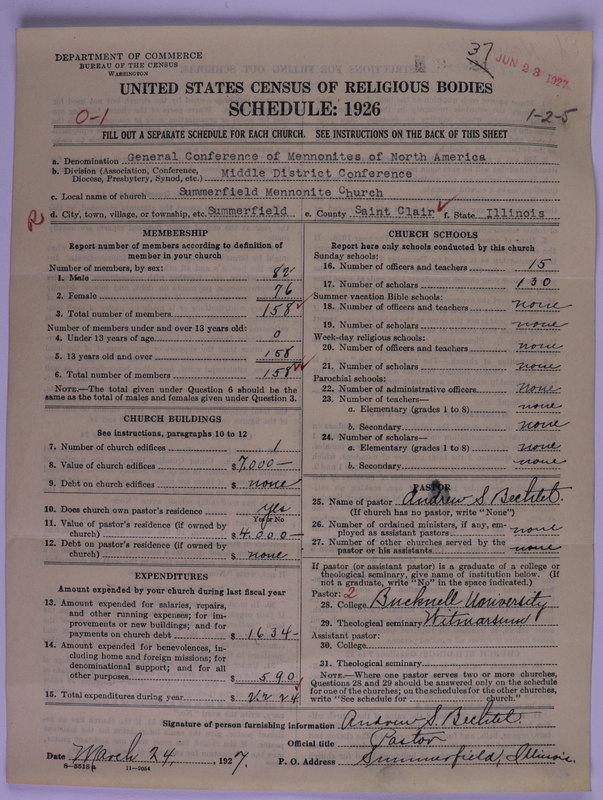 DEPARTMENT OF COMMERCE
BUREAU OF THE CENSUS
WASHINGTON
37
JUN 23 1927
UNITED STATES CENSUS OF RELIGIOUS BODIES
SCHEDULE: 1926
0-1
1-2-5
FILL OUT A SEPARATE SCHEDULE FOR EACH CHURCH. SEE INSTRUCTIONS ON THE BACK OF THIS SHEET
a. Denomination General Conference of Mennonites of North America
b. Division (Association, Conference, Diocese, Presbytery, Synod, etc.) Middle District Conference
c. Local name of church Summerfield Mennonite Church
d. City, town, village, or township, etc. Summerfield e. County Saint Clair f. State Illinois
MEMBERSHIP
Report number of members according to definition of
member in your church
Number of members, by sex:
1. Male 82
2. Female 76
3. Total number of members 158
Number of members under and over 13 years old:
4. Under 13 years of age 0
5. 13 years old and over 158
6. Total number of members 158
NOTE.—The total given under Question 6 should be the
same as the total of males and females given under Question 3.
CHURCH BUILDINGS
See instructions, paragraphs 10 to 12
7. Number of church edifices 1
8. Value of church edifices $7,000—
9. Debt on church edifices $ none
10. Does church own pastor's residence yes
Yes or No
11. Value of pastor's residence (if owned by
church) $4,000—
12. Debt on pastor's residence (if owned by
church) $ none
EXPENDITURES
Amount expended by your church during last fiscal year
13. Amount expended for salaries, repairs,
and other running expenses; for im-
provements or new buildings; and for
payments on church debt $ 1634—
14. Amount expended for benevolences, in-
cluding home and foreign missions; for
denominational support; and for all
other purposes $ 590
15. Total expenditures during year $ 2224
CHURCH SCHOOLS
Report here only schools conducted by this church
Sunday schools:
16. Number of officers and teachers 15
17. Number of scholars 130
Summer vacation Bible schools:
18. Number of officers and teachers none
19. Number of scholars none
Week-day religious schools:
20. Number of officers and teachers none
21. Number of scholars none
Parochial schools:
22. Number of administrative officers none
23. Number of teachers—
a. Elementary (grades 1 to 8) none
b. Secondary none
24. Number of scholars—
a. Elementary (grades 1 to 8) none
b. Secondary none
PASTOR
25. Name of pastor Andrew S. Bechtel.
(If church has no pastor, write "None")
26. Number of ordained ministers, if any, em-
ployed as assistant pastors none
27. Number of other churches served by the
pastor or his assistants none
If pastor (or assistant pastor) is a graduate of a college or
theological seminary, give name of institution below. (If
not a graduate, write "No" in the space indicated.)
Pastor: 2
28. College Bucknell University
29. Theological seminary Witmarsum
Assistant pastor:
30. College
31. Theological seminary
NOTE.—Where one pastor serves two or more churches,
Questions 28 and 29 should be answered only on the schedule
for one of the churches; on the schedules for the other churches,
write "See schedule for church."
Signature of person furnishing information Andrew S. Bechtel
Official title Pastor
Date March 24, 1927. P. O. Address Summerfield, Illinois.
8—5518 a 11—9034